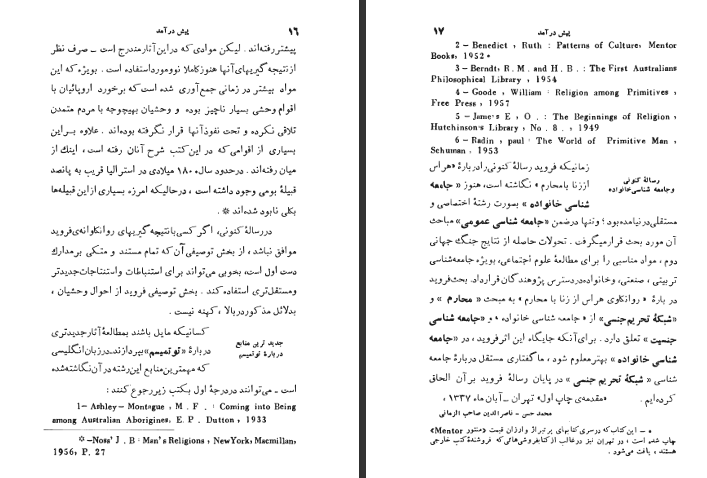 ۱۶ پیش درآمد
پیشتر رفته‌اند . لیکن موادی که در این آثار مندرج است ــ صرف نظر
از نتیجه گیریهای آنها هنوز کاملا نو و مورد استفاده است . بویژه که این
مواد بیشتر در زمانی جمع‌آوری شده است که برخورد اروپائیان با
اقوام وحشی بسیار ناچیز بوده و وحشیان بهیچوجه با مردم متمدن
تلاقی نکرده و تحت نفوذ آنها قرار نگرفته بوده‌اند . علاوه بر این
بسیاری از اقوامی که در این کتب شرح آنان رفته است ، اینك از
میان رفته‌اند . در حدود سال ۱۸۰۰ میلادی در استرالیا قریب به پانصد
قبیلهٔ بومی وجود داشته است ، در حالیکه امروزه بسیاری از این قبیله‌ها
بکلی نابود شده‌اند * .
در رسالهٔ کنونی ، اگر کسی با نتیجه گیریهای روانکاوانه‌ی فروید
موافق نباشد ، از بخش توصیفی آن که تمام مستند و متکی بر مدارك
دست اول است، بخوبی می‌تواند برای استنباطات و استنتاجات جدیدتر
و مستقل‌تری استفاده کند . بخش توصیفی فروید از احوال وحشیان ،
بدلائل مذکور در بالا ، کهنه نیست .
جدید ترین منابع
در بارهٔ توتمیسم
کسانیکه مایل باشند بمطالعهٔ آثار جدیدتری
در بارهٔ «توتمیسم» بپردازند. در زبان انگلیسی
که مهمترین منابع این رشته در آن نگاشته شده
است ــ می‌توانند در درجهٔ اول بکتب زیر رجوع کنند :
1– Ashley– Montague , M . F . : Coming into Being
among Australian Aborigines, E. P . Dutton , 1933
* –Noss' J . B : Man's Religions , NewYork; Macmillan,
1956, P. 27
پیش در آمد ۱۷
2 – Benedict , Ruth : Patterns of Culture; Mentor
Books, 1952 *
3 – Berndt, R . M. and H . B . : The First Australians
Philosophical Library , 1954
4 – Goode , William : Religion among Primitives ,
Free Press , 1957
5 – Jame's E , O . : The Beginnings of Religion ,
Hutchinson's Library , No . 8 . , 1949
6 – Radin , paul : The World of Primitive Man ,
Schuman . 1953
رسالهٔ کنونی
و جامعه شناسی خانواده
زمانیکه فروید رسالهٔ کنونی را در بارهٔ «هراس
از زنا با محارم » نگاشته است، هنوز «جامعه
شناسی خانواده » بصورت رشتهٔ اختصاصی و
مستقلی در نیامده بود ؛ و تنها در ضمن «جامعه شناسی عمومی» مباحث
آن مورد بحث قرار میگرفت . تحولات حاصله از نتایج جنگ جهانی
دوم ، مواد مناسبی را برای مطالعهٔ علوم اجتماعی، بویژه جامعه‌شناسی
تربیتی ، صنعتی، و خانواده در دسترس پژوهندگان قرار داد. بحث فروید
در بارهٔ « روانکاوی هراس از زنا با محارم » به مبحث « محارم » و
«شبکهٔ تحریم جنسی» از « جامعه شناسی خانواده » و «جامعه شناسی
جنسیت » تعلق دارد . برای آنکه جایگاه این اثر فروید ، در «جامعه
شناسی خانواده » بهتر معلوم شود ، ما گفتاری مستقل در بارهٔ جامعه
شناسی « شبکهٔ تحریم جنسی » در پایان رسالهٔ فروید بر آن الحاق
کرده‌ایم . «مقدمه‌ی چاپ اول» تهران ــ آبان ماه ۱۳۳۷ ،
محمد حسن - ناصرالدین صاحب الزمانی
* – این کتاب که در سری کتابهای پر تیراژ و ارزان قیمت «منتور Mentor»
چاپ شده است ، در تهران نیز در غالب از کتابفروشی‌هائی که فروشندهٔ کتب خارجی
هستند ، یافت می‌شود .